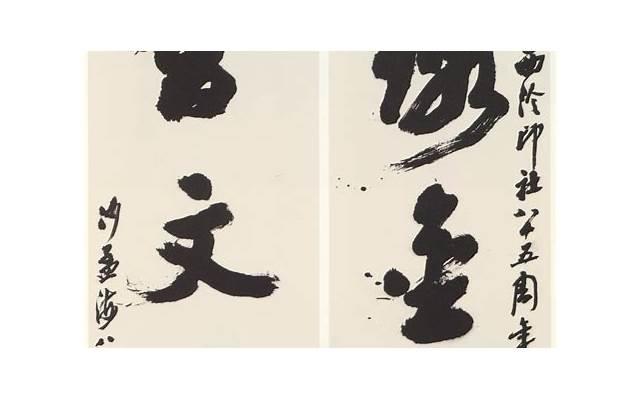 西泠印社八十五周年
金
文
沙孟海八